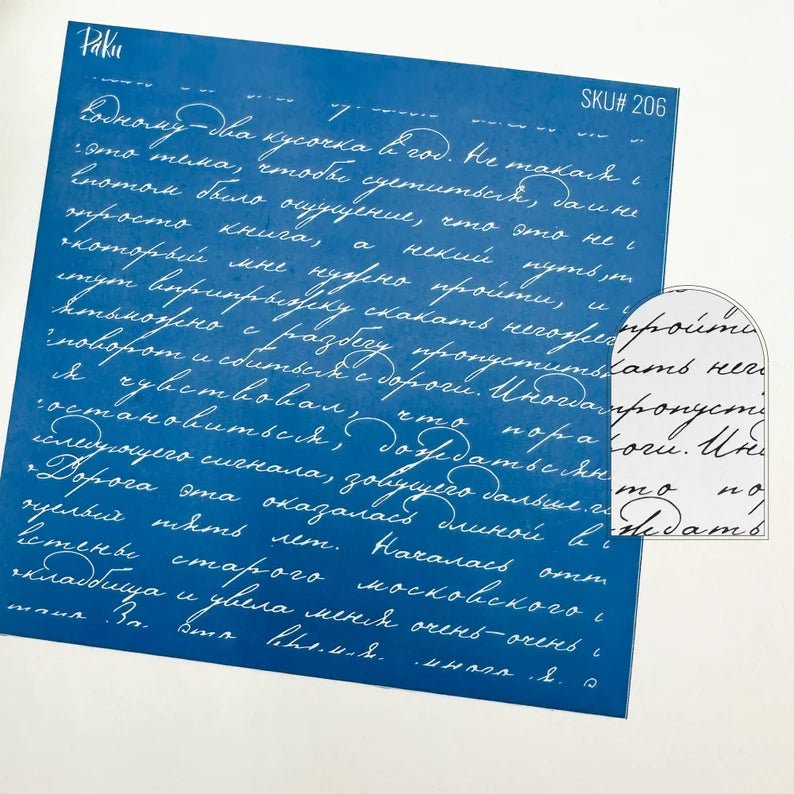 Раки
SKU# 206
одному-два кусочка в год. Не такая
это тема, чтобы суетиться, да и не
потом было ощущение, что это не
просто книга, а некий путь,
который мне нужно пройти, и
тут вприпрыжку скакать негоже
можно с разбегу пропустить
поворот и сбиться с дороги. Иногда
я чувствовал, что пора
остановиться, дождаться
следующего сигнала, зовущего дальше.
Дорога эта оказалась длиной в
целых пять лет. Началась от
стены старого московского
кладбища и увела меня очень-очень
За это время много я
пройти
кать него
пропусти
роги. Ин
что по
ждать